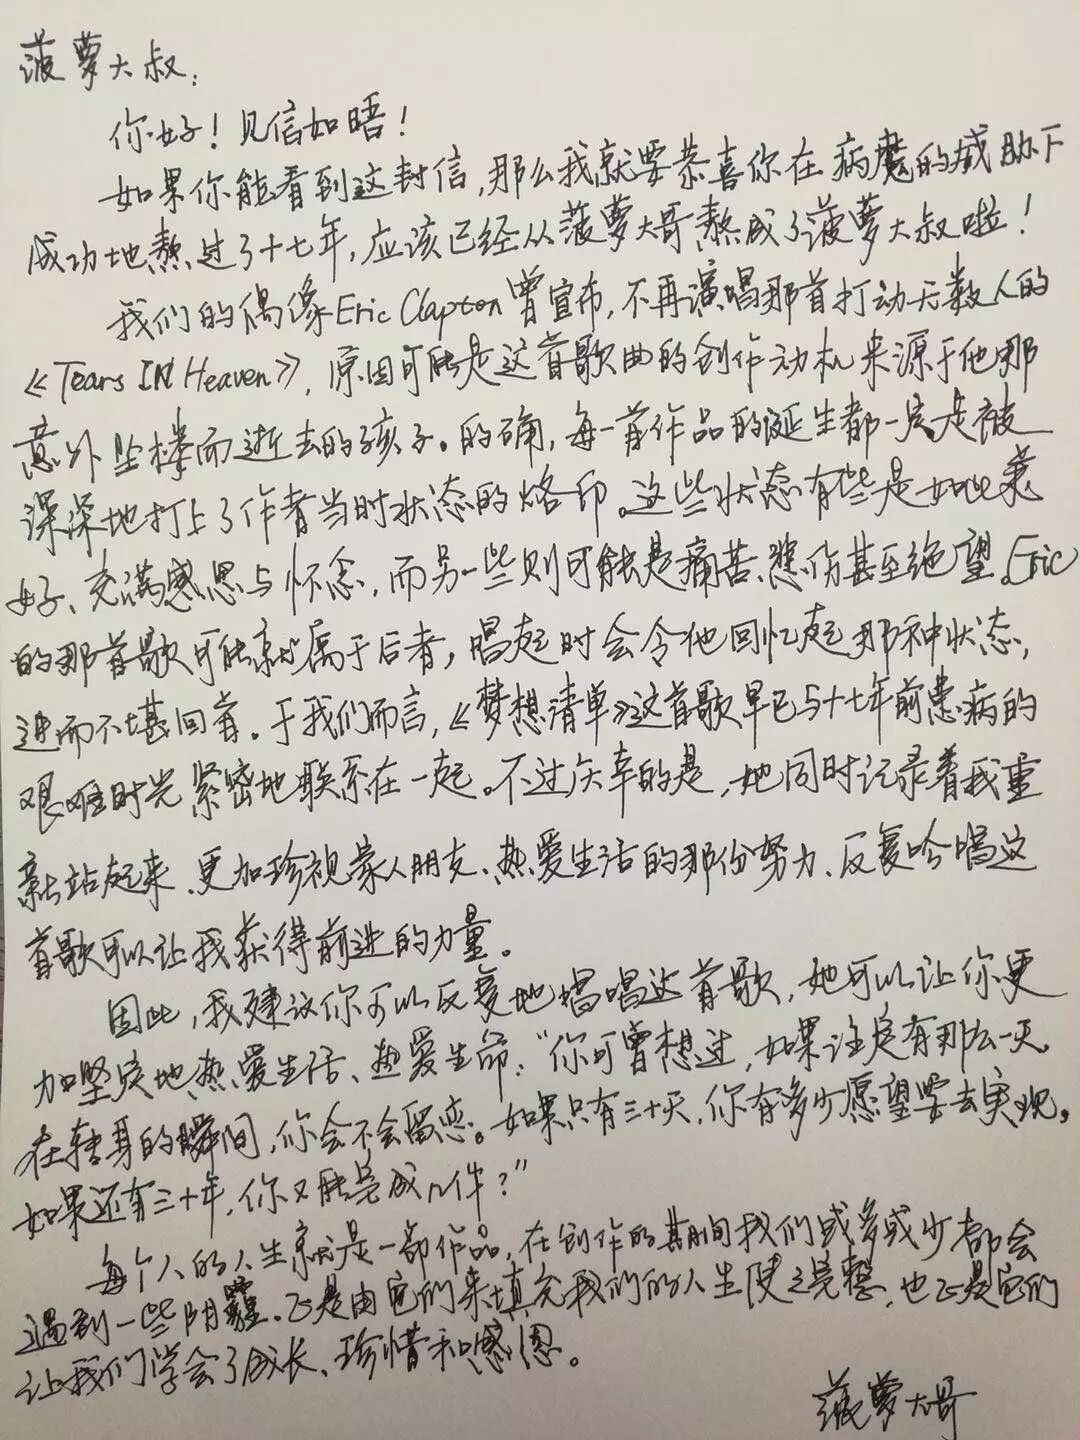 菠萝大叔：
你好！见信如晤！
如果你能看到这封信，那么我就要恭喜你在病魔的威胁下
成功地熬过了十七年，应该已经从菠萝大哥熬成了菠萝大叔啦！
我们的偶像Eric Clapton曾宣布，不再演唱那首打动无数人的
《Tears IN Heaven》，原因可能是这首歌曲的创作动机来源于他那
意外坠楼而逝去的孩子。的确，每一首作品的诞生都一定是被
深深地打上了作者当时状态的烙印。这些状态有些是如此美
好、充满感恩与怀念，而另一些则可能是痛苦、悲伤甚至绝望。Eric
的那首歌可能就属于后者，唱起时会令他回忆起那种状态，
进而不堪回首。于我们而言，《梦想清单》这首歌早已与十七年前患病的
艰难时光紧密地联系在一起。不过庆幸的是，她同时记录着我重
新站起来、更加珍视家人朋友、热爱生活的那份努力、反复吟唱这
首歌可以让我获得前进的力量。
因此，我建议你可以反复地唱唱这首歌，她可以让你更
加坚定地热爱生活、热爱生命：“你可曾想过，如果注定有那么一天。
在转身的瞬间，你会不会留恋。如果只有三十天，你有多少愿望要去实现。
如果还有三十年，你又能完成几件？”
每个人的人生就是一部作品，在创作的期间我们或多或少都会
遇到一些阴霾。正是由它们来填充我们的人生使之完整，也正是它们
让我们学会了成长、珍惜和感恩。
菠萝大哥